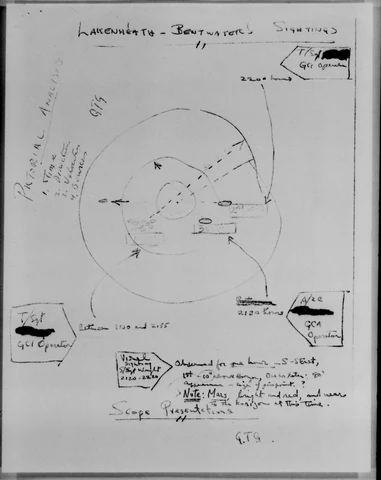 LAKENHEATH - BENTWATERS SIGHTINGS
T/Sgt
GCI Operator
2200 hours
PICTORIAL ANALYSIS
1. Time
2. Direction
3. Velocity
4. Sources
T/Sgt
GCI Operator
Between 2130 and 2155
2120 hours
A/2c
GCA
Operator
Visual
Sighting
2120-2220
Observed for one hour - S-SEast,
alt - 10° above horizon.
appearance - size of pinpoint. ?
Note: Mars, bright and red, and near
to the horizon at this time.
Scope Presentations